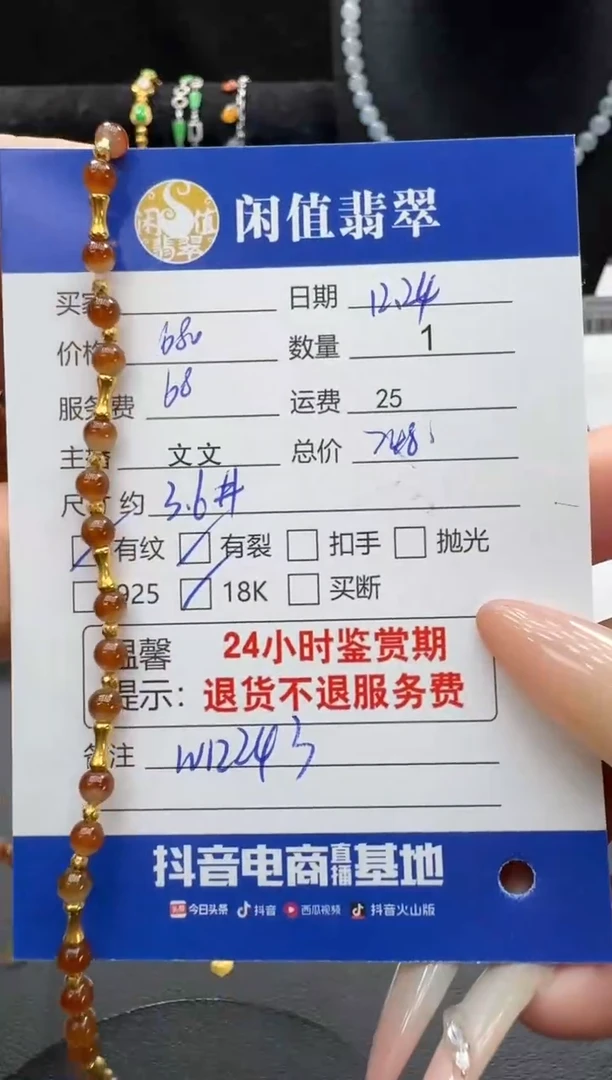 闲值翡翠
闲值翡翠
日期 12.24
680 数量 1
服务费 68 运费 25
文文 总价
约 3.6#
有纹 有裂 扣手 抛光
925 18K 买断
温馨 24小时鉴赏期
提示: 退货不退服务费
备注
抖音电商直播基地
头条 今日头条 抖音 西瓜视频 抖音火山版